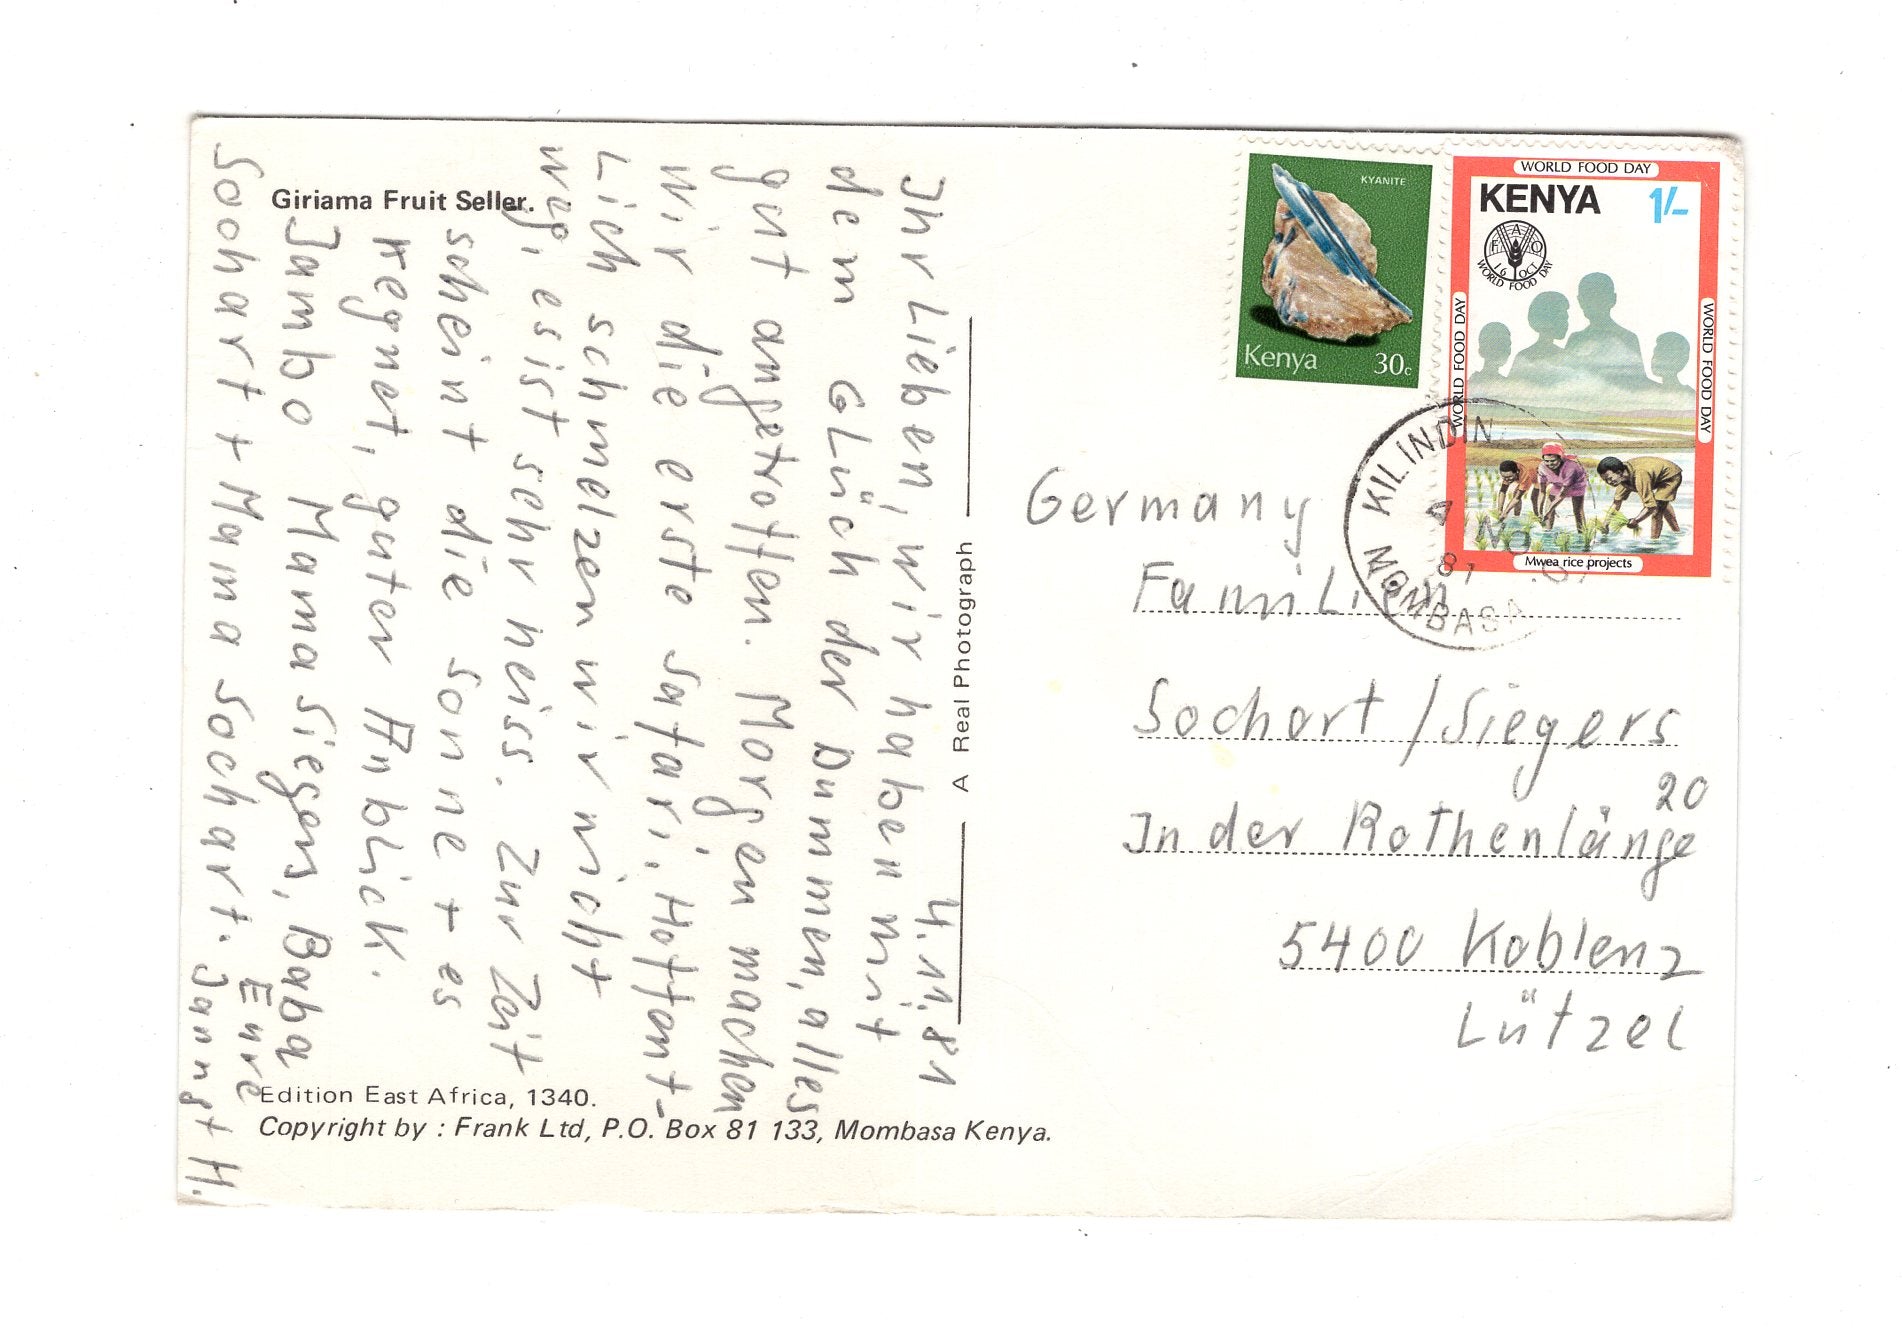 Giriama Fruit Seller.
4.11.81
Ihr Lieben, wir haben mit
dem Glück der Dummen, alles
gut angetroffen. Morgen machen
wir die erste Safari, Hoffent-
lich schmelzen wir nicht
weg, es ist sehr heiss. Zur Zeit
scheint die Sonne + es
regnet, guter Anblick.
Jambo Mama Siegers, Baba
Sochart + Mama Sochart. Eure
H.
Edition East Africa, 1340.
Copyright by : Frank Ltd, P.O. Box 81 133, Mombasa Kenya.
A Real Photograph
KYANITE
Kenya 30c
WORLD FOOD DAY
KENYA 1/-
FAO
16 OCT
WORLD FOOD DAY
WORLD FOOD DAY
WORLD FOOD DAY
Mwea rice projects
KILINDIN
4 NO
81
MOMBASA
Germany
Familien
Sochart / Siegers
In der Rothenlänge 20
5400 Koblenz
Lützel